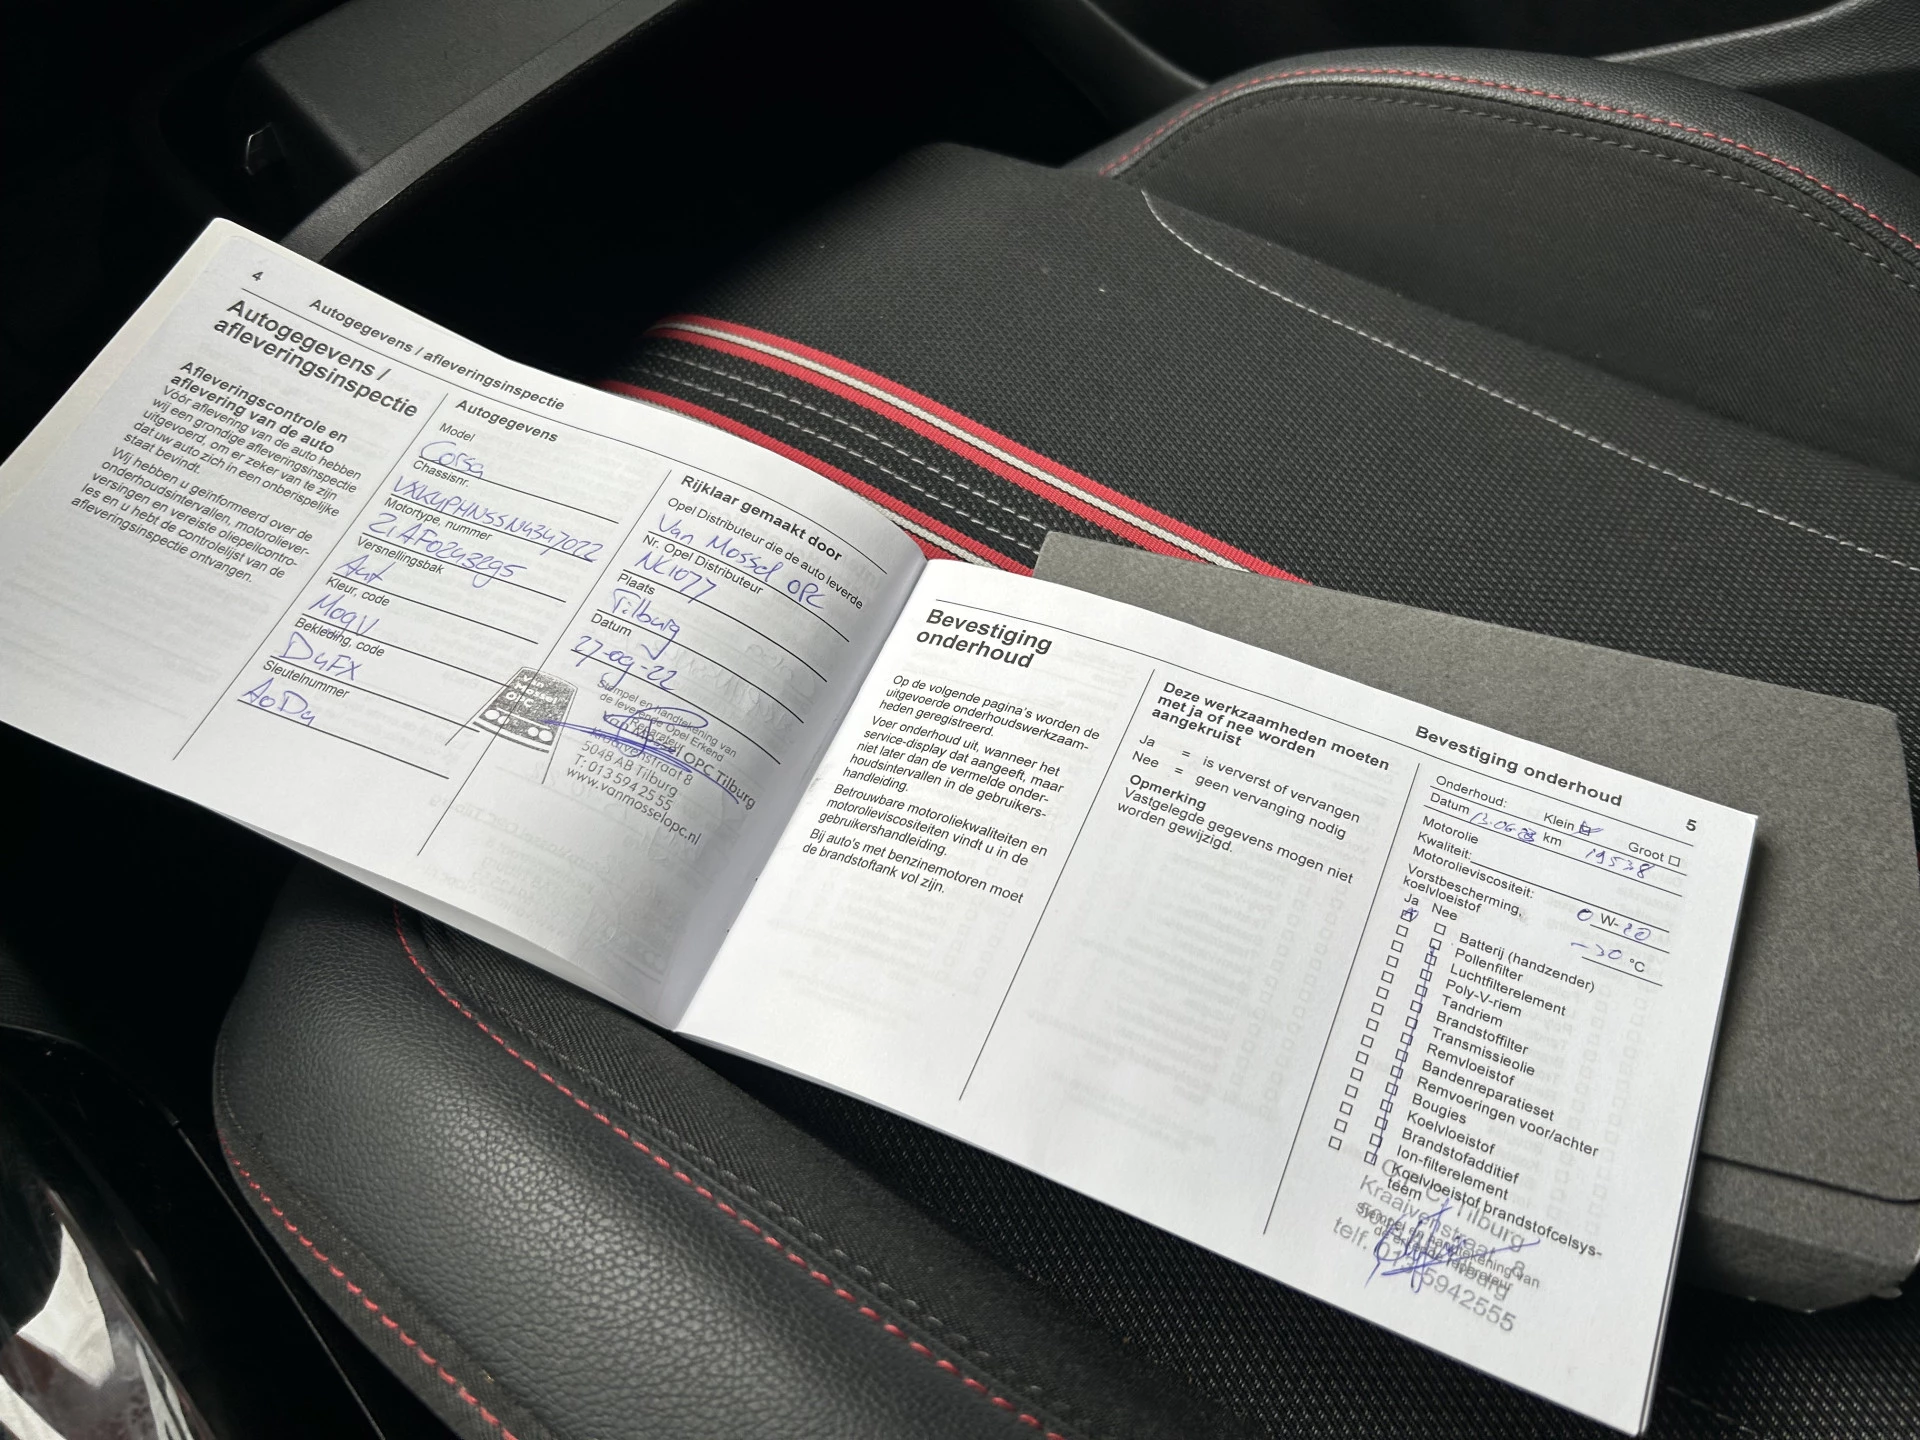 4
Autogegevens / afleveringsinspectie
Autogegevens /
afleveringsinspectie
Afleveringscontrole en
aflevering van de auto
Vóór aflevering van de auto hebben
wij een grondige afleveringsinspectie
uitgevoerd, om er zeker van te zijn
dat uw auto zich in een onberispelijke
staat bevindt.
Wij hebben u geïnformeerd over de
onderhoudsintervallen, motoroliever-
versingen en vereiste oliepeilcontro-
les en u hebt de controlelijst van de
afleveringsinspectie ontvangen.
Autogegevens
Model
Corsa
Chassisnr.
VXKUPHNSSN4347022
Motortype, nummer
Versnellingsbak
Aut
Kleur, code
MogV
Bekleding, code
D4FX
Sleutelnummer
A0D4
Rijklaar gemaakt door
Opel Distributeur die de auto leverde
Van Mossel OPC
Nr. Opel Distributeur
NL1077
Plaats
Tilburg
Datum
27-09-22
Stempel en handtekening van
de leverende Opel Erkend
Reparateur
Van Mossel OPC Tilburg
Kraaivenstraat 8
5048 AB Tilburg
T: 013 594 25 55
www.vanmosselopc.nl
van
Mossel
OPC
Bevestiging
onderhoud
Op de volgende pagina's worden de
uitgevoerde onderhoudswerkzaam-
heden geregistreerd.
Voer onderhoud uit, wanneer het
service-display dat aangeeft, maar
niet later dan de vermelde onder-
houdsintervallen in de gebruikers-
handleiding.
Betrouwbare motoroliekwaliteiten en
motorolieviscositeiten vindt u in de
gebruikershandleiding.
Bij auto's met benzinemotoren moet
de brandstoftank vol zijn.
Deze werkzaamheden moeten
met ja of nee worden
aangekruist
Ja = is ververst of vervangen
Nee = geen vervanging nodig
Opmerking
Vastgelegde gegevens mogen niet
worden gewijzigd.
Bevestiging onderhoud
5
Onderhoud: Klein Groot
Datum 13-06-23 km 19538
Motorolie
Kwaliteit:
Motorolieviscositeit: 0 W-20
Vorstbescherming,
koelvloeistof -30 °C
Ja Nee
Batterij (handzender)
Pollenfilter
Luchtfilterelement
Poly-V-riem
Tandriem
Brandstoffilter
Transmissieolie
Remvloeistof
Bandenreparatieset
Remvoeringen voor/achter
Bougies
Koelvloeistof
Brandstofadditief
Ion-filterelement
Koelvloeistof brandstofcelsys-
teem
OPC Tilburg
Kraaivenstraat 8
Stempel en handtekening van
telf. 013 5942555